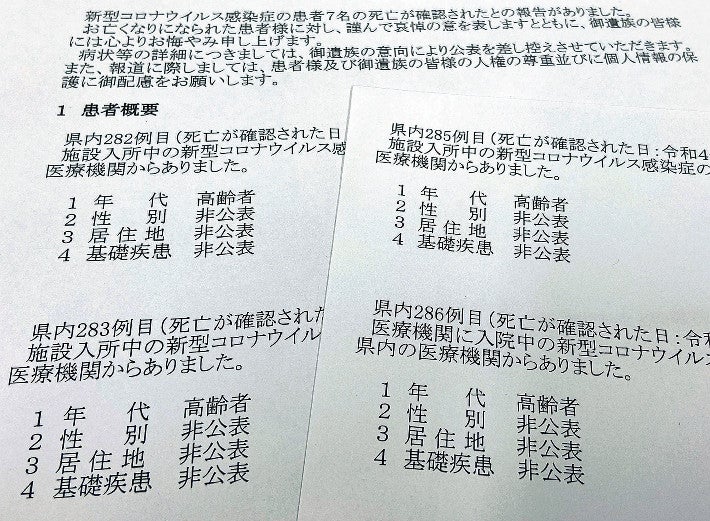 新型コロナウイルス感染症の患者7名の死亡が確認されたとの報告がありました。
お亡くなりになられた患者様に対し、謹んで哀悼の意を表しますとともに、御遺族の皆様
には心よりお悔やみ申し上げます。
病状等の詳細につきましては、御遺族の意向により公表を差し控えさせていただきます。
また、報道に際しましては、患者様及び御遺族の皆様の人権の尊重並びに個人情報の保
護に御配慮をお願いします。
1 患者概要
県内282例目(死亡が確認された日
施設入所中の新型コロナウイルス感
医療機関からありました。
1 年代 高齢者
2 性別 非公表
3 居住地 非公表
4 基礎疾患 非公表
県内283例目(死亡が確認された
施設入所中の新型コロナウイル
医療機関からありました。
1 年代 高齢者
2 性別 非公表
3 居住地 非公表
4 基礎疾患 非公表
県内285例目(死亡が確認された日:令和4
施設入所中の新型コロナウイルス感染症の
医療機関からありました。
1 年代 高齢者
2 性別 非公表
3 居住地 非公表
4 基礎疾患 非公表
県内286例目(死亡が確認された日:令和
医療機関に入院中の新型コロナウイルス
県内の医療機関からありました。
1 年代 高齢者
2 性別 非公表
3 居住地 非公表
4 基礎疾患 非公表